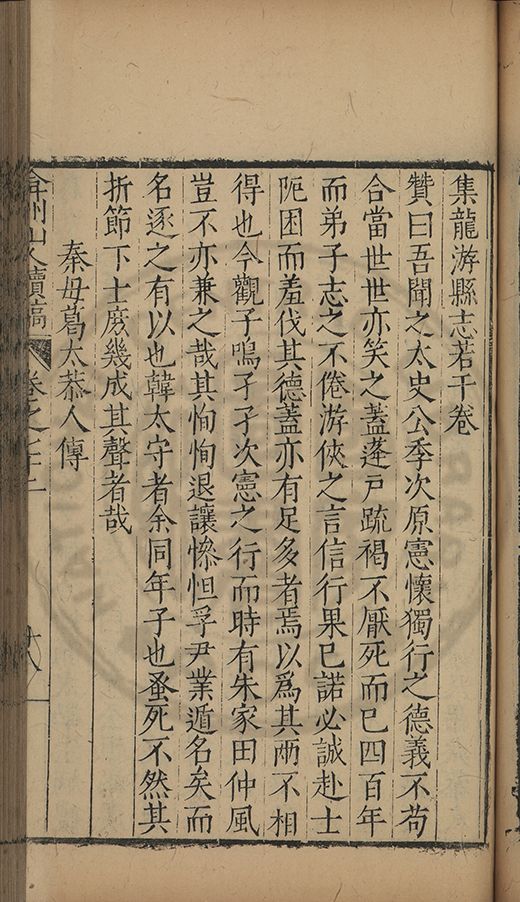 集龍游縣志若干卷
贊曰吾聞之太史公季次原憲懷獨行之德義不苟
合當世世亦笑之蓋蓬戶疏褐不厭死而已四百年
而弟子志之不倦游俠之言信行果已諾必誠赴士
阨困而羞伐其德蓋亦有足多者焉以爲其兩不相
得也今觀子鳴孑孑次憲之行而時有朱家田仲風
豈不亦兼之哉其恂恂退讓慘怛孚尹業遁名矣而
名逐之有以也韓太守者余同年子也蚤死不然其
折節下士庶幾成其聲者哉
秦母葛太恭人傳
弇州山人續稿 卷之七十二